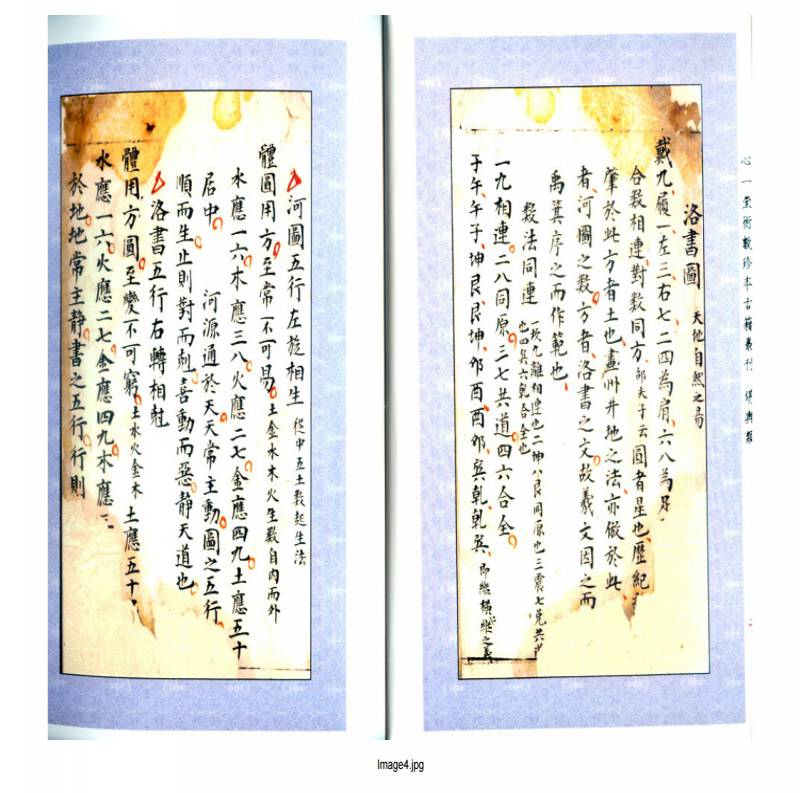 心一堂術數珍本古籍叢刊 堪輿類
洛書圖 天地自然之易
戴九履一左三右七二四為肩六八為足
合數相連對數同方邵夫子云圓者星也歷紀
肇於此方者土也畫州井地之法亦倣於此
者河圖之數方者洛書之文故羲文因之而
禹箕序之而作範也
數法同連 一坎九離相連也二坤八艮同原也三震七兌共
也四巽六乾合全也
一九相連二八同原三七共道四六合全
子午午子坤艮艮坤卯酉酉卯巽乾乾巽 即
河圖五行左旋相生 從中五土數起生法
體圓用方至常不可易 土金水木火生數自內而外
水應一六木應三八火應二七金應四九土應五十
居中 河源通於天天常主動圖之五行
順而生止則對而剋喜動而惡靜天道也
洛書五行右轉相尅
體用方圓至變不可窮 土水火金木 土應五十
水應一六火應二七金應四九木應三
於地地常主靜書之五行行則
Image4.jpg